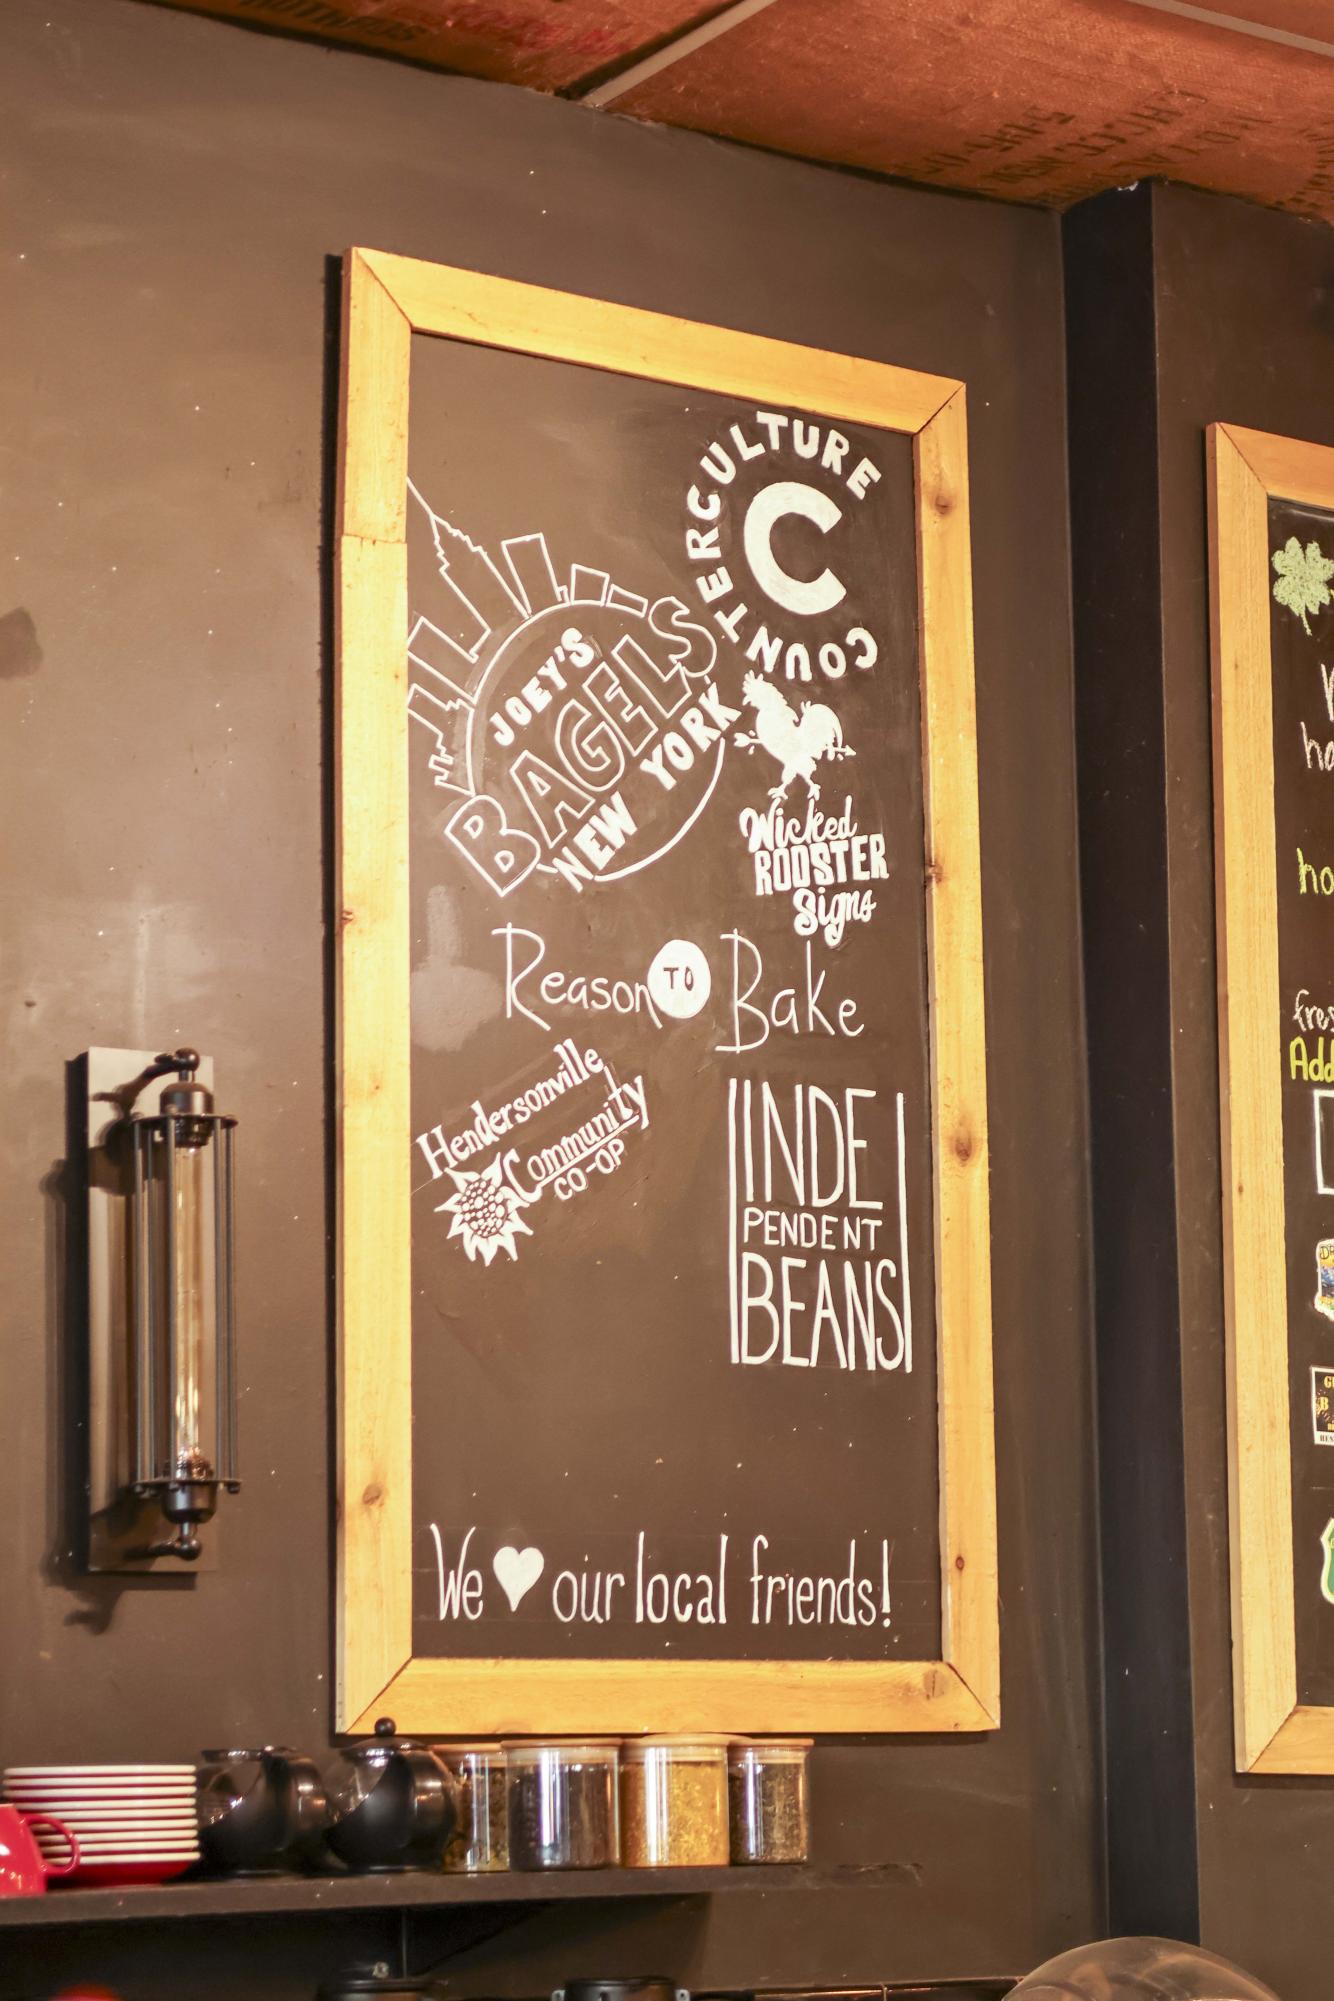 COUNTER CULTURE
C
JOEY'S
BAGELS
NEW YORK
Wicked
ROOSTER
Signs
Reason TO Bake
Hendersonville
Community
CO-OP
INDE
PENDENT
BEANS
We ♥ our local friends!
Add